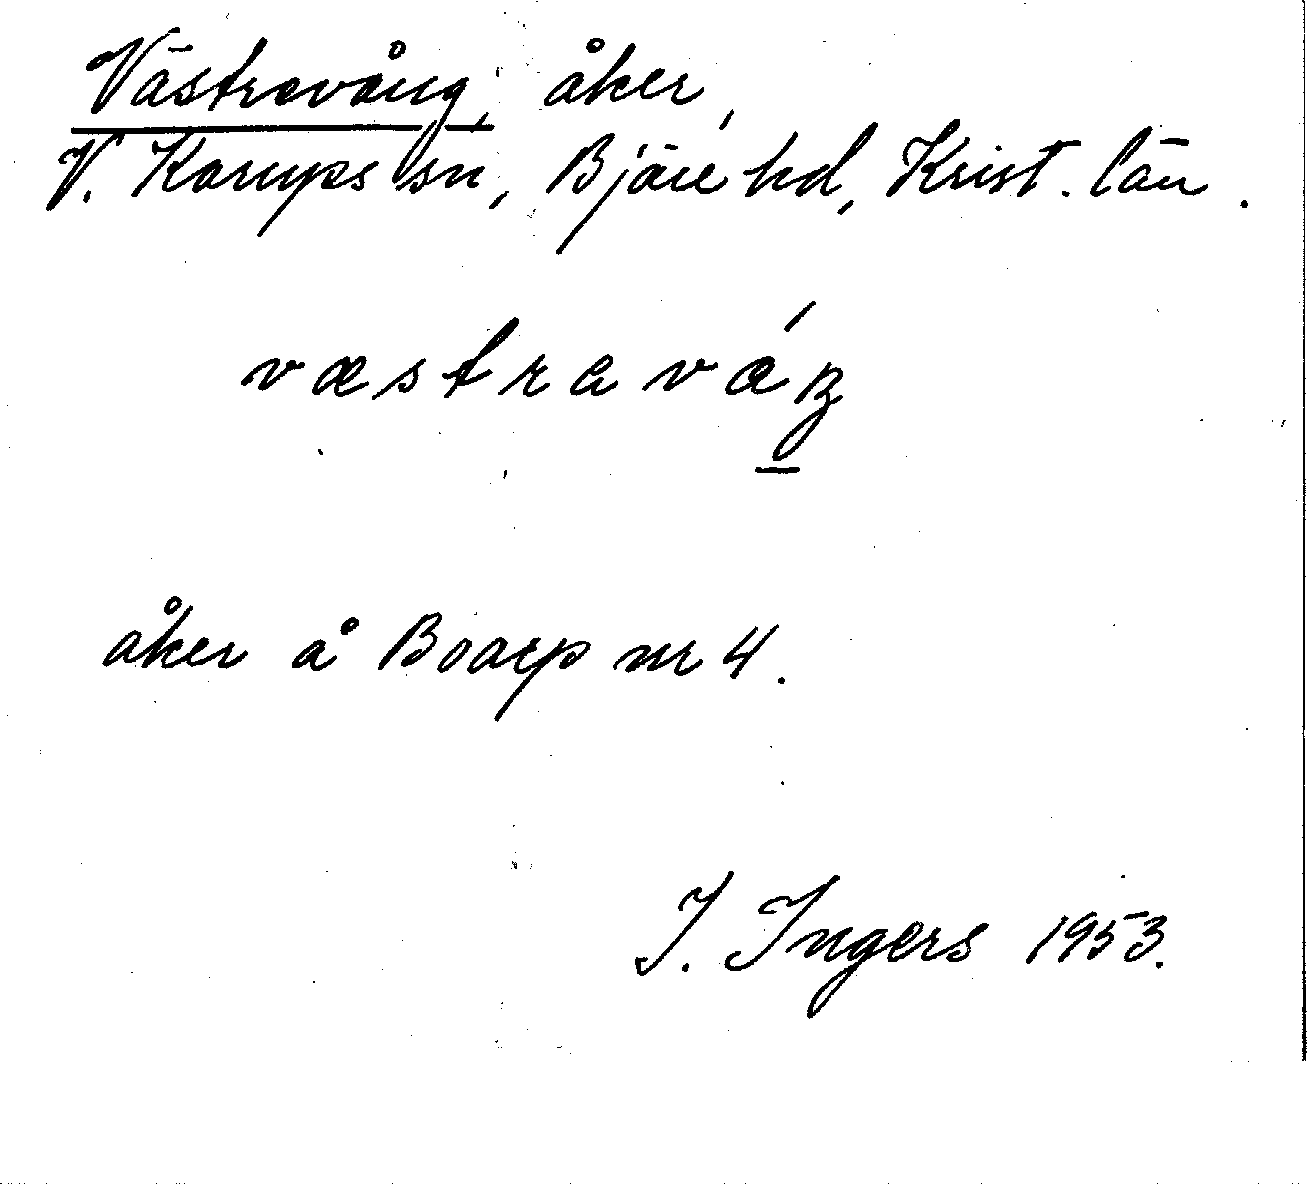 Västravång, åker,
V. Karups sn, Bjäre hd, Krist. län.
væstraváŋ
åker å Boarp nr 4.
I. Ingers 1953.